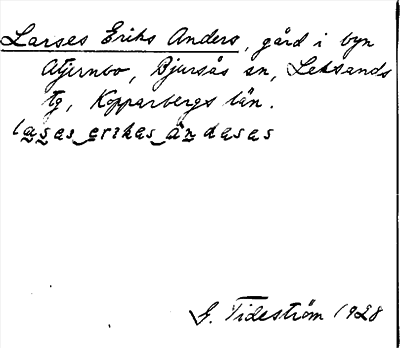 Larses Eriks Anders, gård i byn
Stjernbo, Bjursås sn, Leksands
tg, Kopparbergs län.
lasas erikas ándasas
G. Tideström 1928